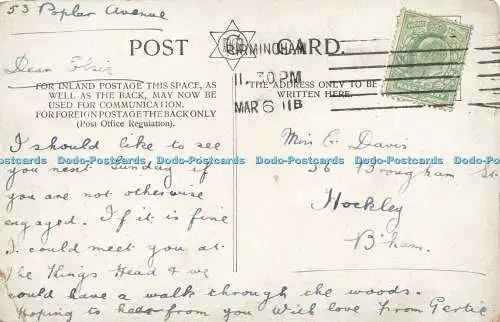 53 Poplar Avenue
POST CARD.
BIRMINGHAM
11. 30 PM
MAR 6 11B
Dear Elsie
FOR INLAND POSTAGE THIS SPACE, AS
WELL AS THE BACK, MAY NOW BE
USED FOR COMMUNICATION.
FOR FOREIGN POSTAGE THE BACK ONLY
(Post Office Regulation).
THE ADDRESS ONLY TO BE
WRITTEN HERE.
I should like to see
you next Sunday if
you are not otherwise
engaged. If it is fine
I could meet you at
The Kings Head & we
could have a walk through the woods.
Hoping to hear from you With love from Gertie
Miss E. Davis
56 Brougham St
Hockley
B'ham.
Dodo-Postcards Dodo-Postcards Dodo-Postcards Dodo-Postcards Dodo-Postcards